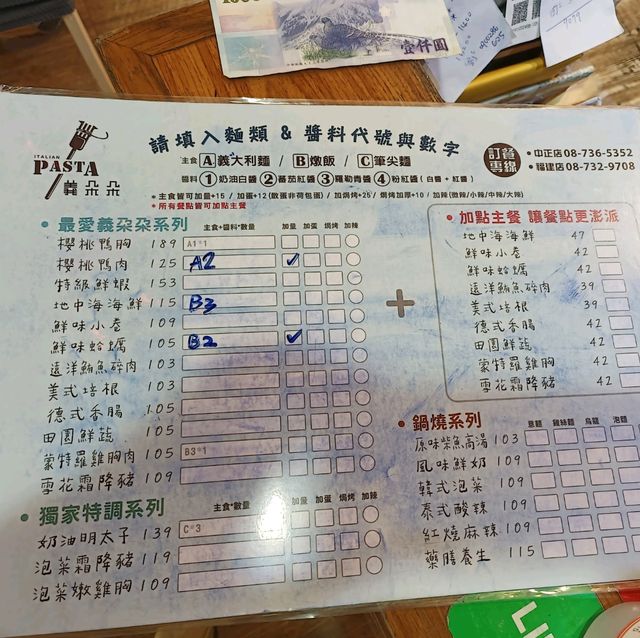 壹仟圓
ITALIAN
PASTA
義朵朵
請填入麵類 & 醬料代號與數字
主食 A 義大利麵 / B 燉飯 / C 筆尖麵
醬料 ① 奶油白醬 ② 蕃茄紅醬 ③ 羅勒青醬 ④ 粉紅醬 (白醬 + 紅醬)
*主食皆可加量+15 / 加蛋+12 (散蛋非荷包蛋) / 加焗烤+25 / 焗烤加厚+10 / 加辣 (微辣/小辣/中辣/大辣)
*所有餐點皆可加點主餐
訂餐專線
•中正店 08-736-5352
•福建店 08-732-9708
•最愛義朵朵系列 主食+醬料*數量 加量 加蛋 焗烤 加辣
櫻桃鴨胸 189 A1*1
櫻桃鴨肉 125 A2 ✓
特級鮮蝦 153
地中海海鮮 115 B3
鮮味小卷 109
鮮味蛤蠣 105 B2 ✓
遠洋鮪魚碎肉 103
美式培根 103
德式香腸 105
田園鮮蔬 105
蒙特羅雞胸肉 105 B3*1
雪花霜降豬 109
•獨家特調系列 主食*數量 加量 加蛋 焗烤 加辣
奶油明太子 139 C*3
泡菜霜降豬 119
泡菜嫩雞胸 109
+
•加點主餐 讓餐點更澎派
地中海海鮮 47
鮮味小卷 42
鮮味蛤蠣 42
遠洋鮪魚碎肉 39
美式培根 39
德式香腸 42
田園鮮蔬 42
蒙特羅雞胸 42
雪花霜降豬 42
•鍋燒系列 意麵 雞絲麵 烏龍 泡麵
原味柴魚高湯 103
風味鮮奶 109
韓式泡菜 109
泰式酸辣 109
紅燒麻辣 109
藥膳養生 115